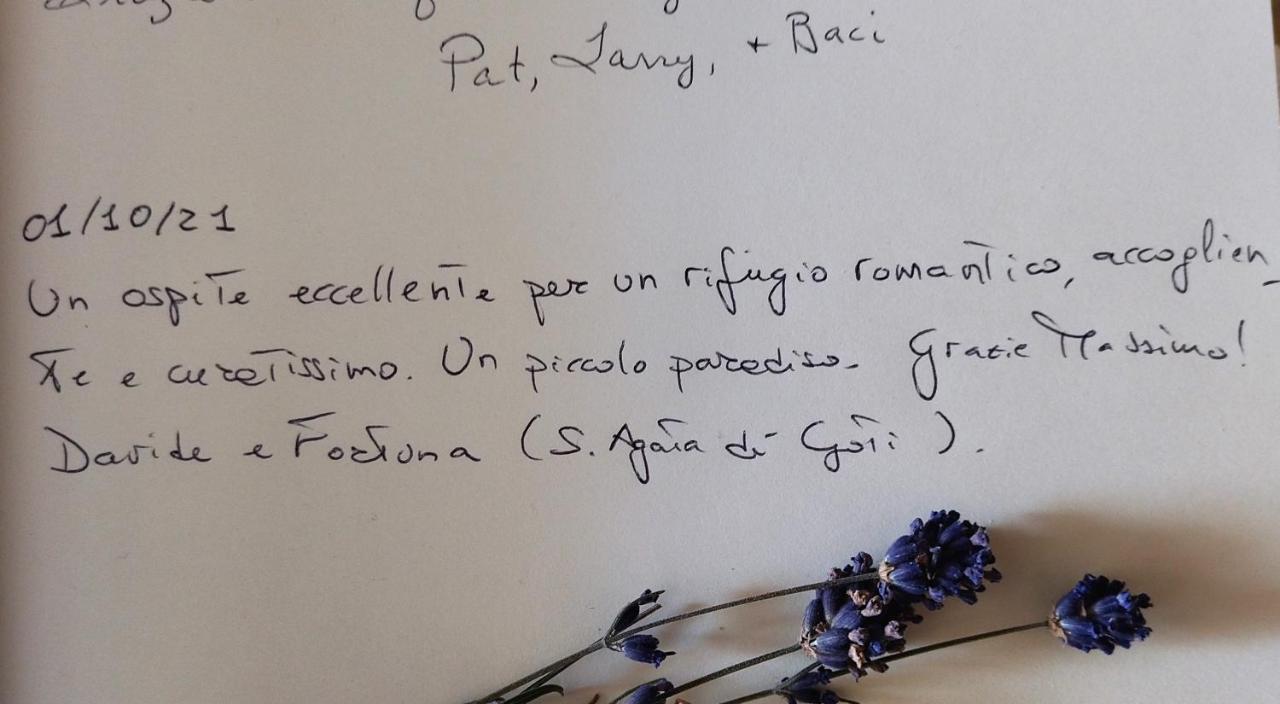 Pat, Larry, + Baci
01/10/21
Un ospite eccellente per un rifugio romantico, accoglien-
te e curatissimo. Un piccolo paradiso. Grazie Massimo!
Davide e Fortuna (S. Agata dé Goti).